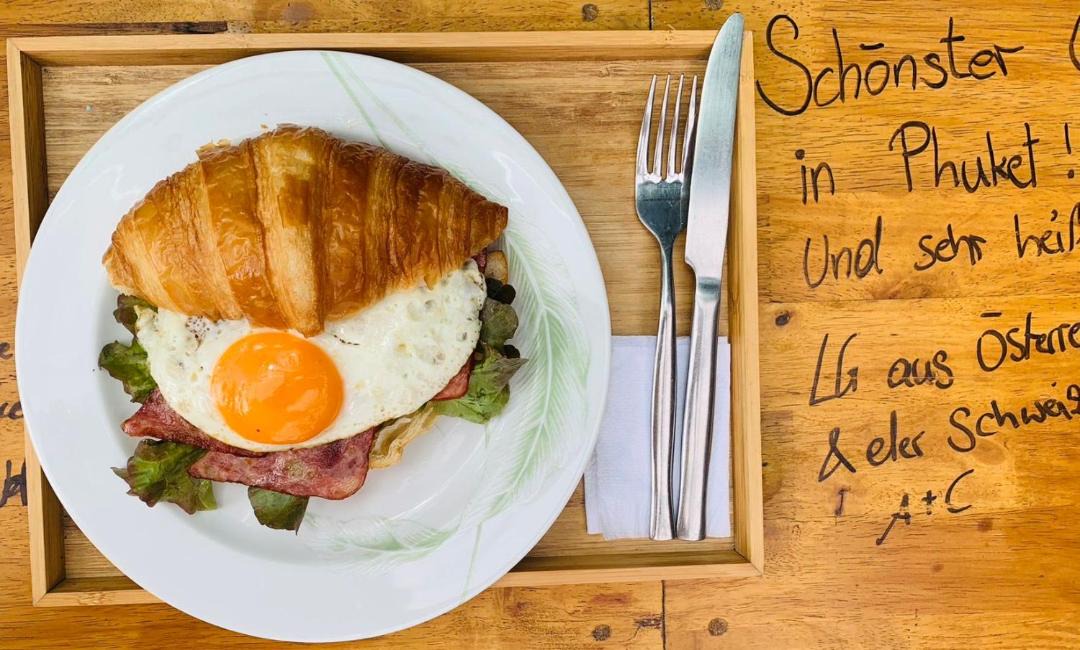 Schönster
in Phuket!
Und sehr heiß
LG aus Österre
& der Schweiz
A+C